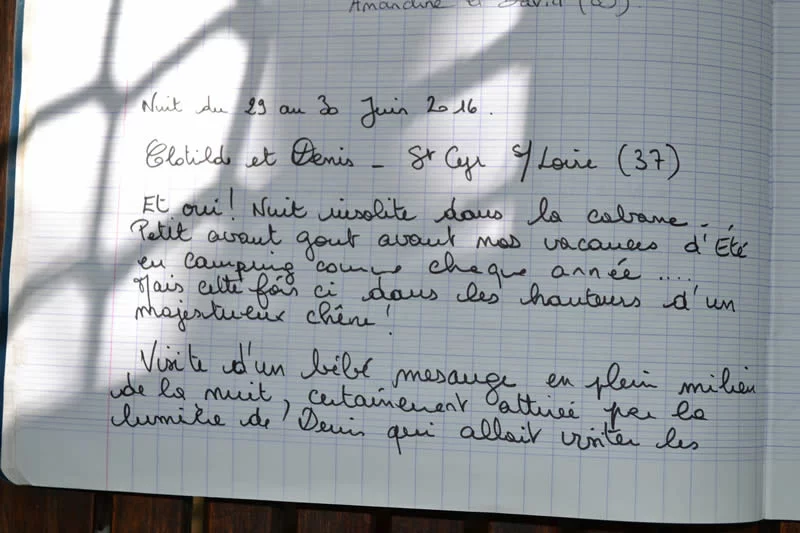 Amandine et David (83).
Nuit du 29 au 30 Juin 2016.
Clotilde et Denis - St Cyr s/ Loire (37)
Et oui! Nuit insolite dans la cabane -
Petit avant gout avant nos vacances d'Été
en camping comme chaque année ....
Mais cette fois ci dans les hauteurs d'un
majestueux chêne!
Visite d'un bébé mesange en plein milieu
de la nuit, certainement attirée par la
lumière de Denis qui allait visiter les